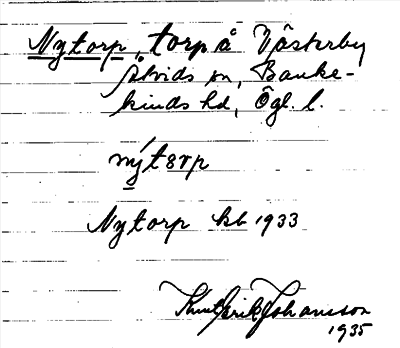 Nytorp, torp å Västerby
Åtvids sn, Banke-
kinds hd, Ögl. l.
nýtorp
Nytorp kb 1933
Knut Erik Johansson
1935